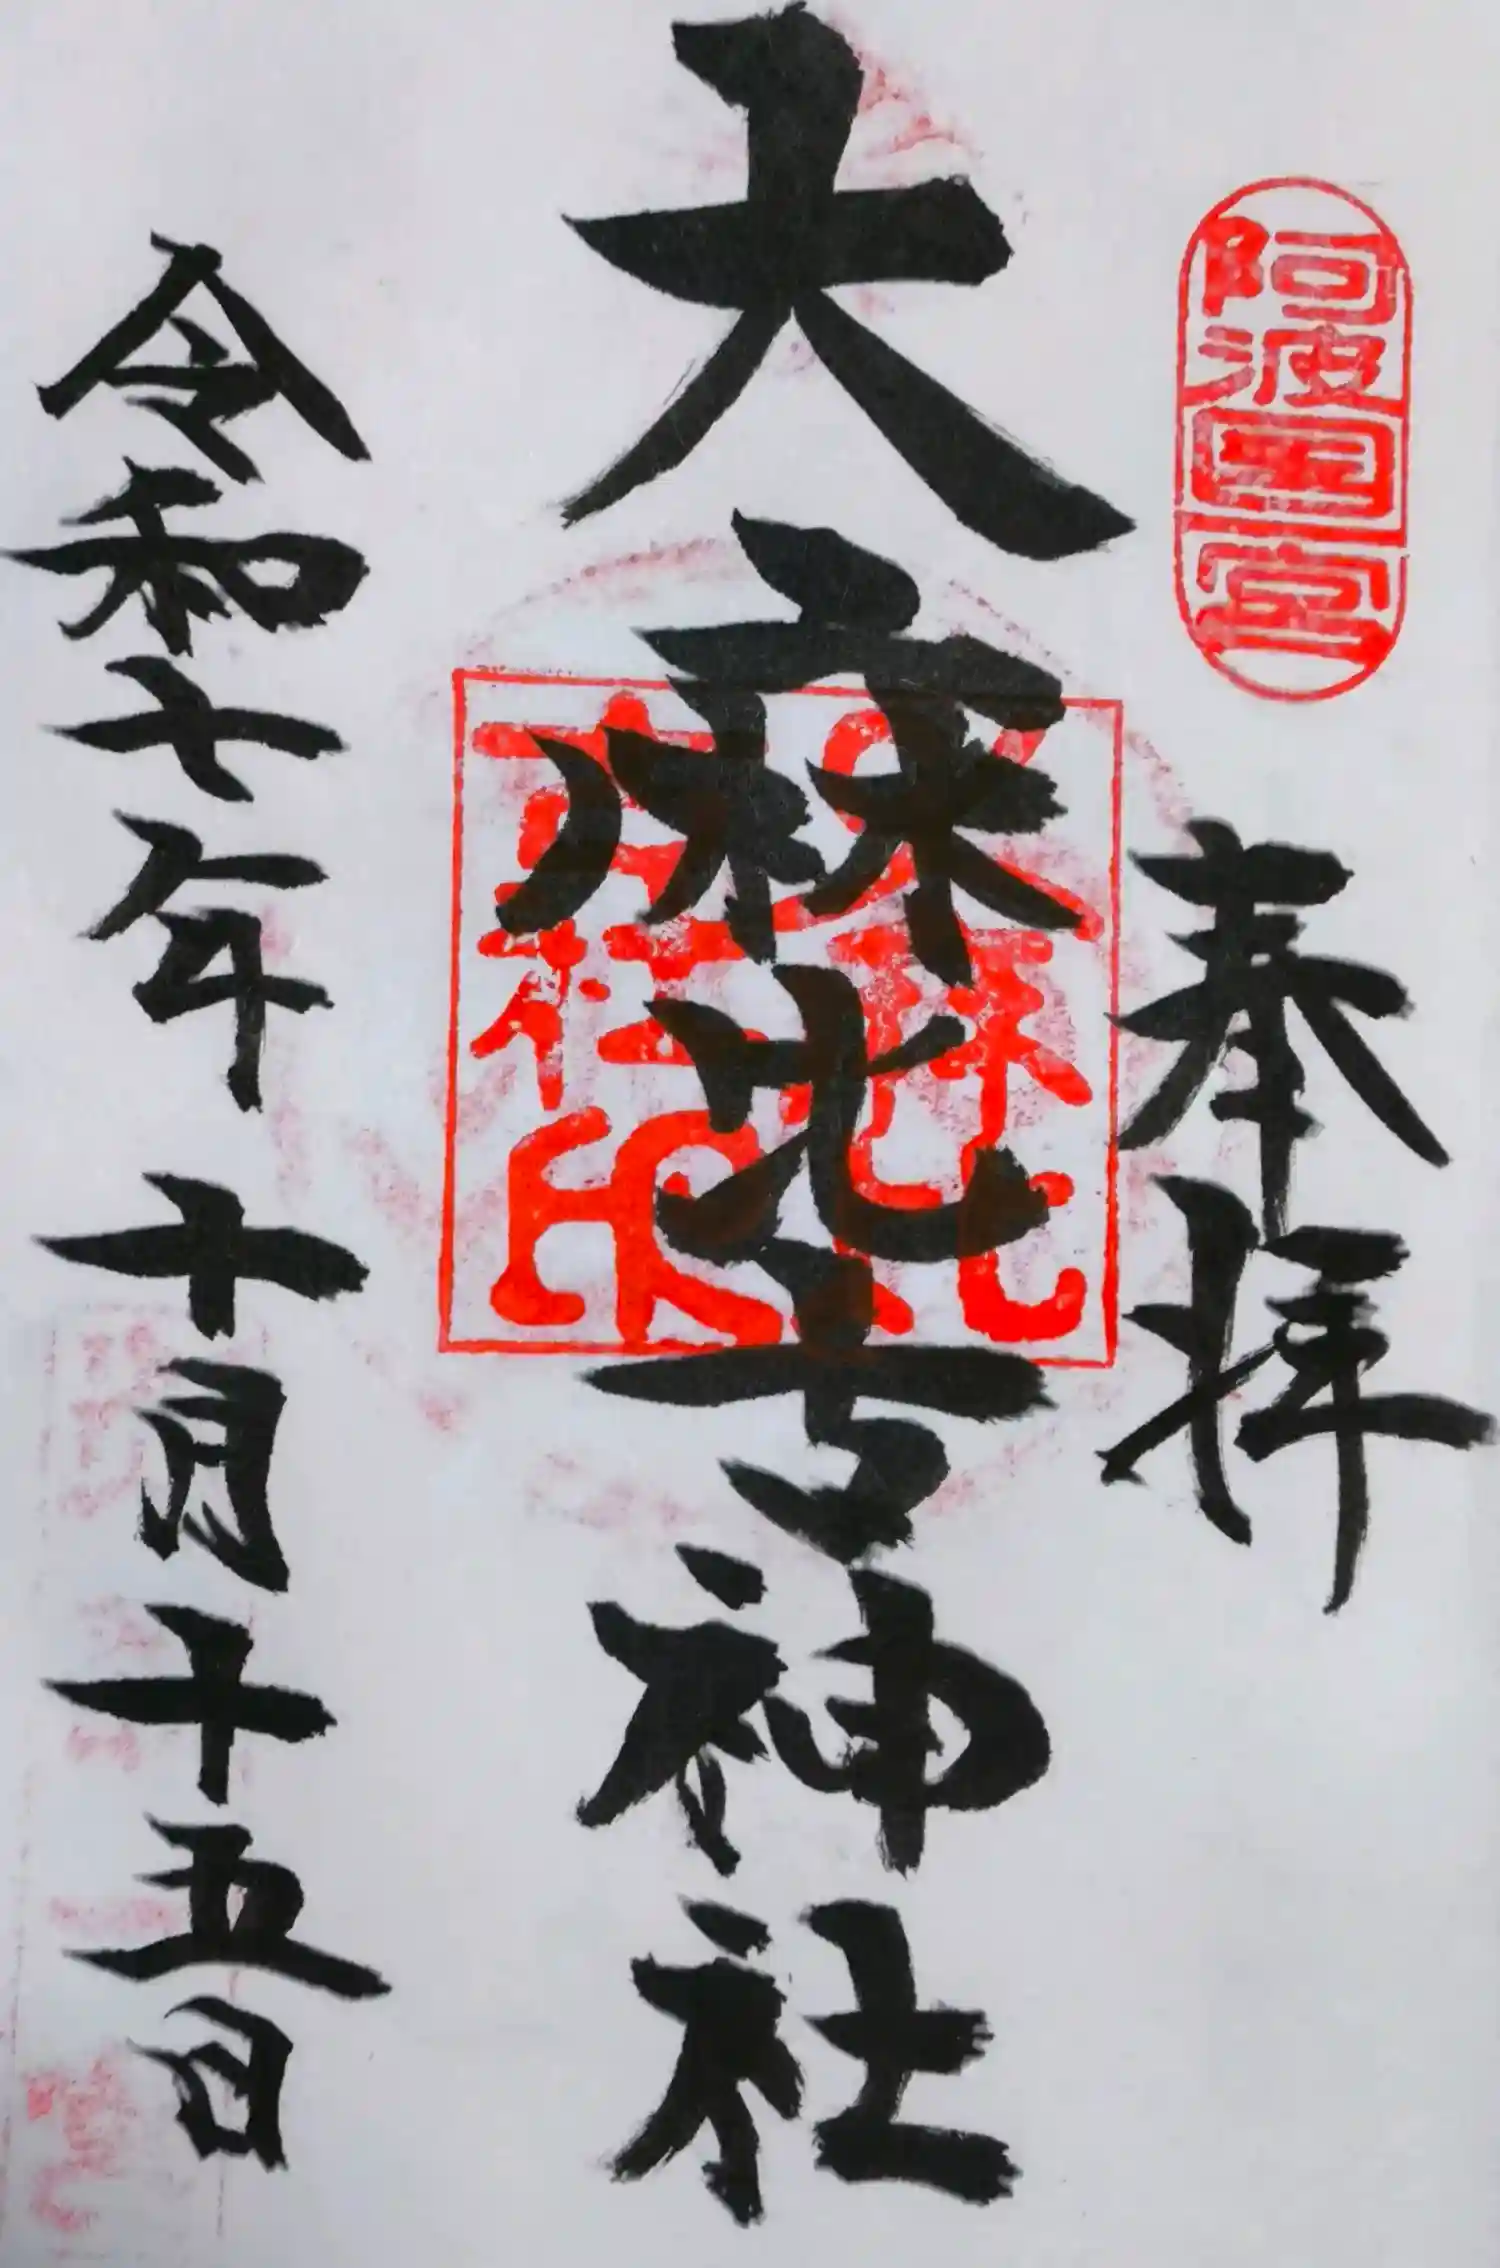 阿波国一宮
奉拝
大麻比古神社
令和七年 十月十五日